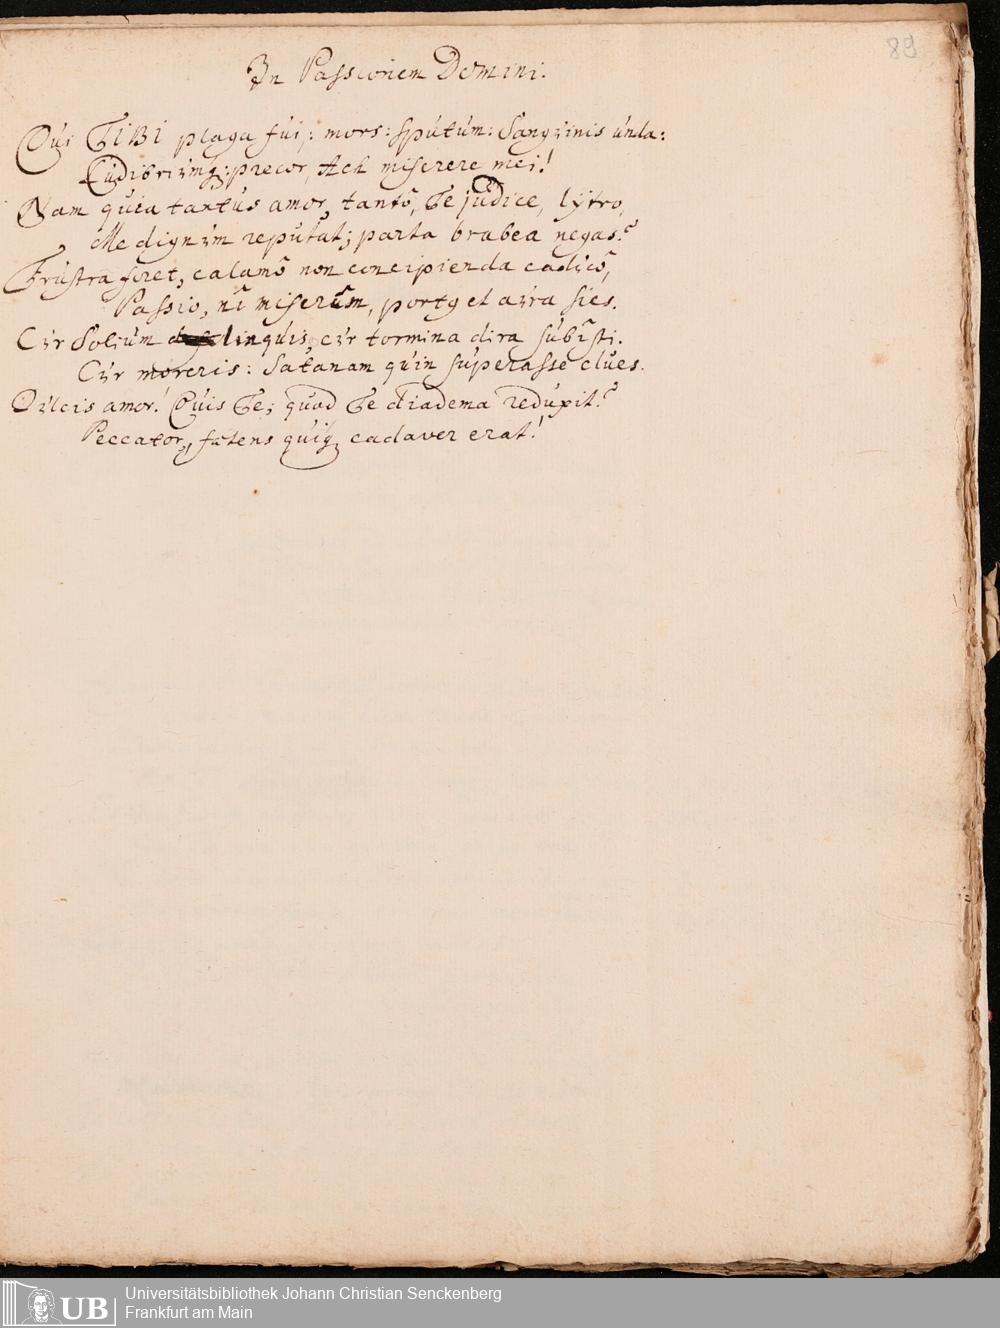 89
In Passionem Domini.
Qui TIBI plaga fui; mors: sputum: Sangvinis unda:
Ludibriumq; precor, Ach miserere mei!
Nam quia tantus amor, tantô, Te judice, lytro,
Me dignum reputat; parta brabea negas?
Frustra foret, calamô non concipienda cadúcô,
Passio, nî miserûm, port9 et aura sies.
Cur Solium linquis, cur tormina dira subîsti.
Cur moreris: Satanam quin superasse clues.
Dulcis amor! Quis Te; quod Te diadema reduxit?
Peccator, fatens quiq; cadaver erat!
UB
Universitätsbibliothek Johann Christian Senckenberg
Frankfurt am Main